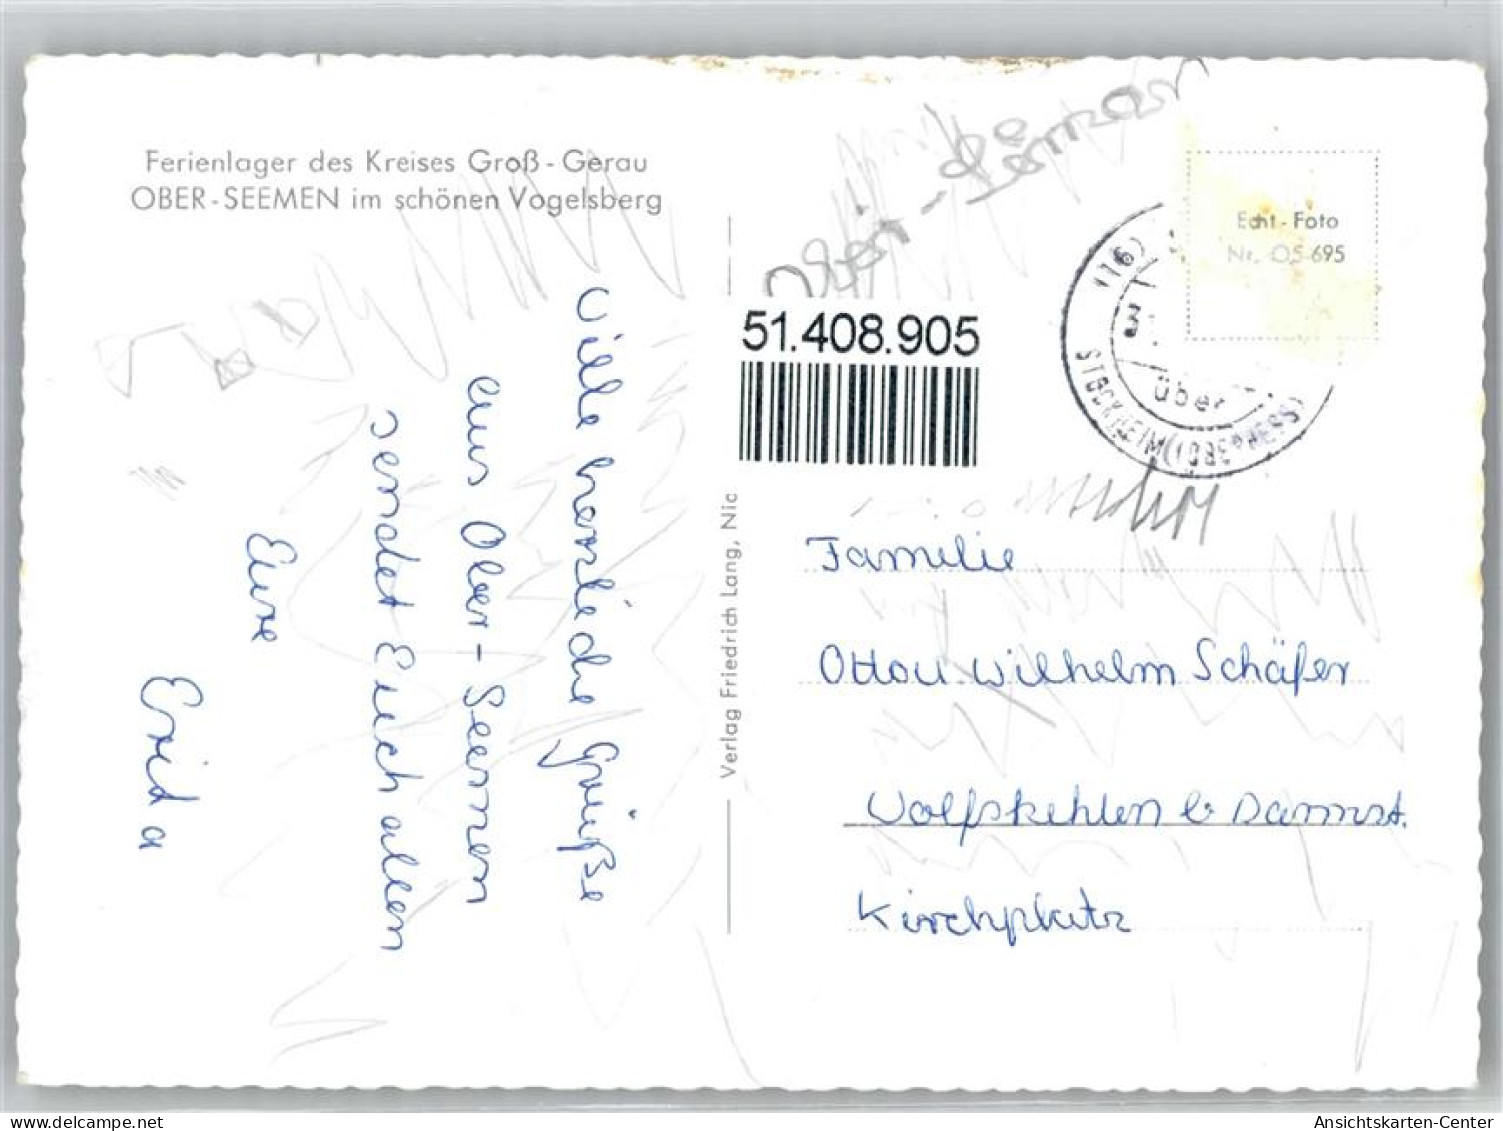 Ferienlager des Kreises Groß-Gerau
OBER-SEEMEN im schönen Vogelsberg
Viele herzliche Grüße
aus Ober-Seemen
sendet Euch allen
Eure
Erida
Verlag Friedrich Lang, Nic
51.408.905
Echt-Foto
Nr. OS 695
(16)
3
über
STOCKHEIM (OBERHESS)
Familie
Otto u Wilhelm Schäfer
Wolfskehlen b Darmst.
Kirchplatz
Ansichtskarten-Center